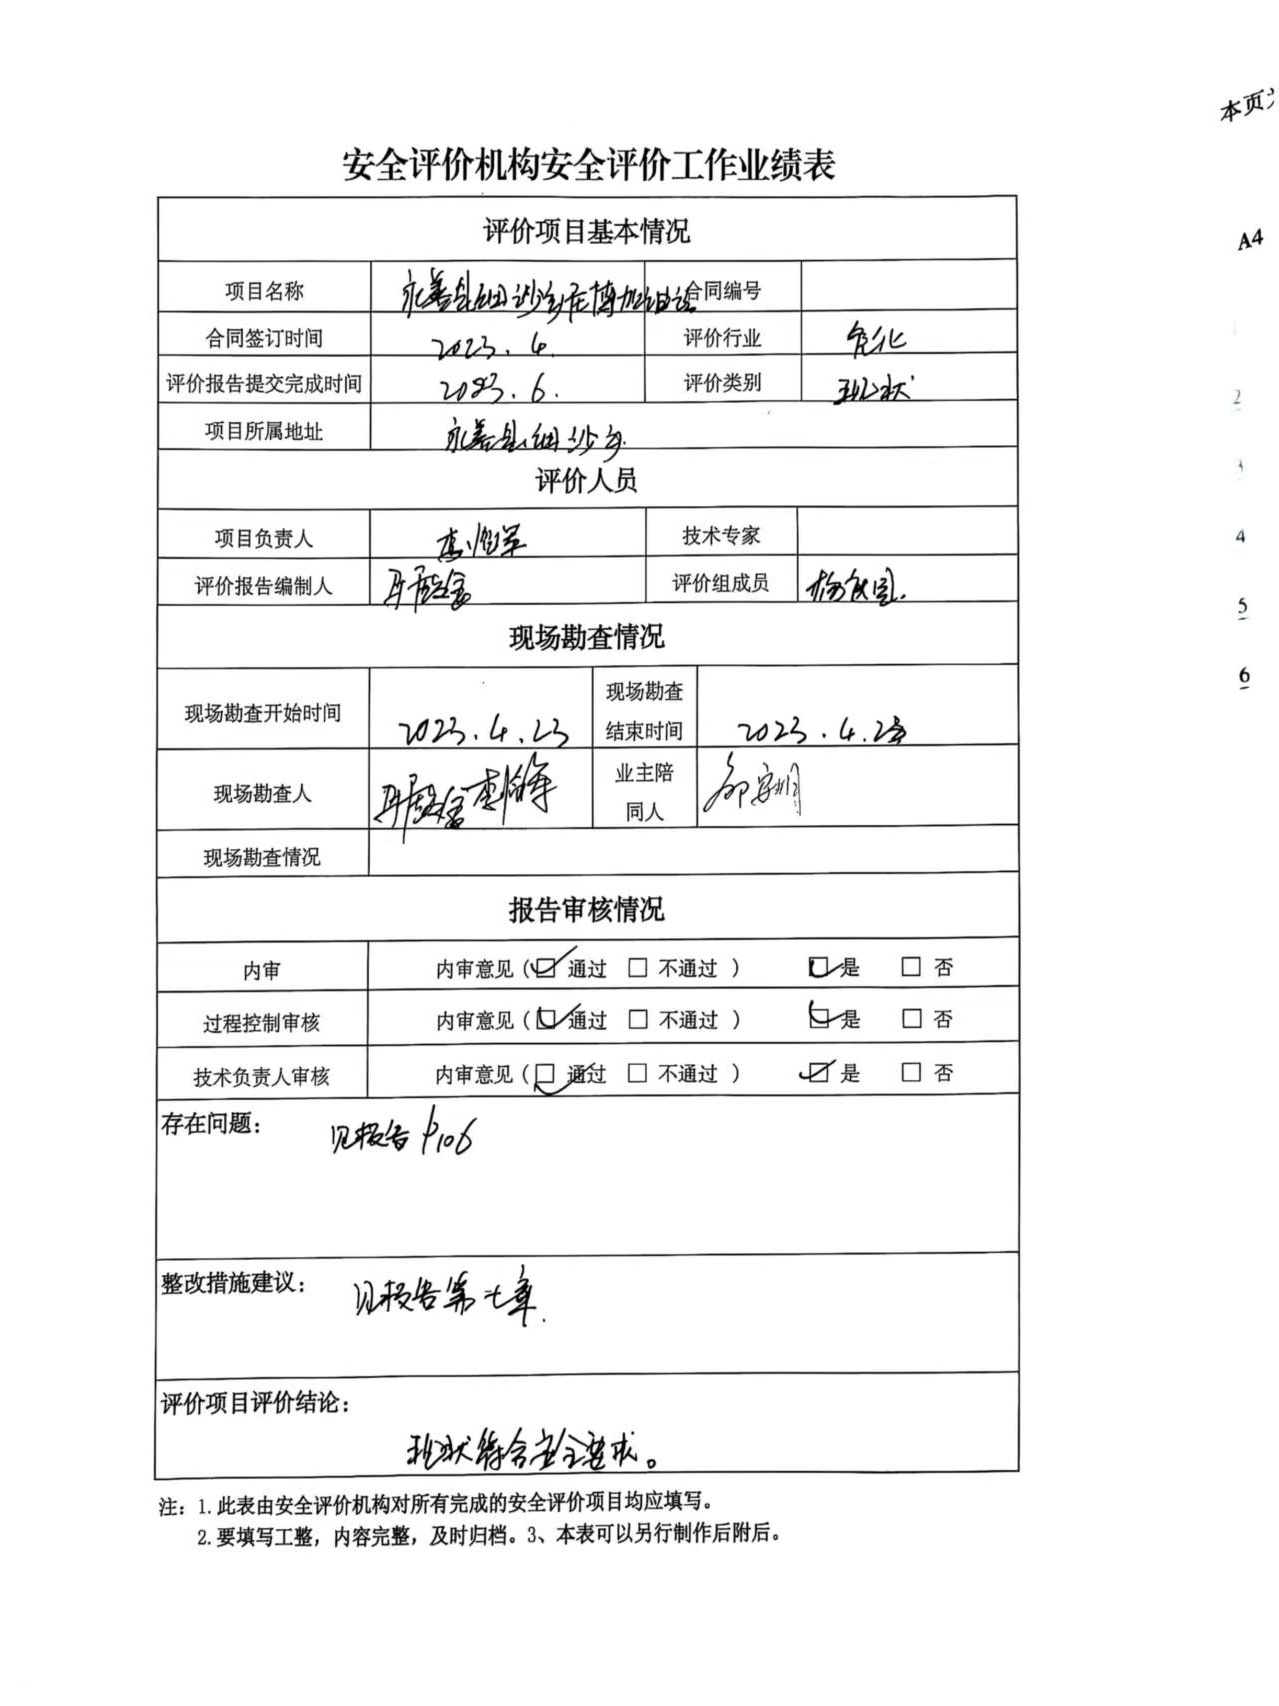 本页
安全评价机构安全评价工作业绩表
A4
评价项目基本情况
项目名称 永善县细沙乡 加油站 合同编号
合同签订时间 2023.4. 评价行业 危化
评价报告提交完成时间 2023.6. 评价类别 现状
项目所属地址 永善县细沙乡
2
评价人员
3
项目负责人 技术专家
4
评价报告编制人 评价组成员
5
现场勘查情况
6
现场勘查开始时间 2023.4.23 现场勘查结束时间 2023.4.23
现场勘查人 业主陪同人
现场勘查情况
报告审核情况
内审 内审意见(☑通过 □不通过 ) ☑是 □否
过程控制审核 内审意见(☑通过 □不通过 ) ☑是 □否
技术负责人审核 内审意见(☑通过 □不通过 ) ☑是 □否
存在问题: 见报告P106
整改措施建议: 见报告第七章.
评价项目评价结论:
现状符合安全要求。
注: 1.此表由安全评价机构对所有完成的安全评价项目均应填写。
2.要填写工整，内容完整，及时归档。3、本表可以另行制作后附后。